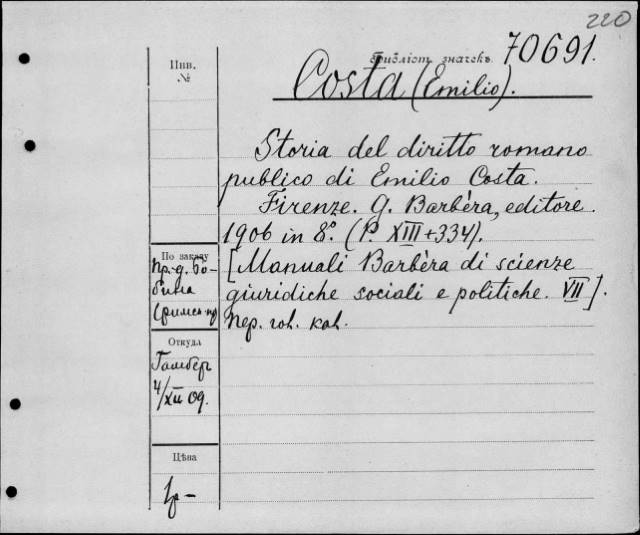 220
Инв.
№
Библіот. значекъ 70691.
Costa (Emilio).
Storia del diritto romano
publico di Emilio Costa.
Firenze. G. Barbèra, editore.
1906 in 8°. (P. XIII+334).
[Manuali Barbèra di scienze
giuridiche sociali e politiche. VII].
Пер. гол. кол.
По заказу
пр-д. Бо-
бина
Откуда
Гамбер
4/XII 09.
Цѣна